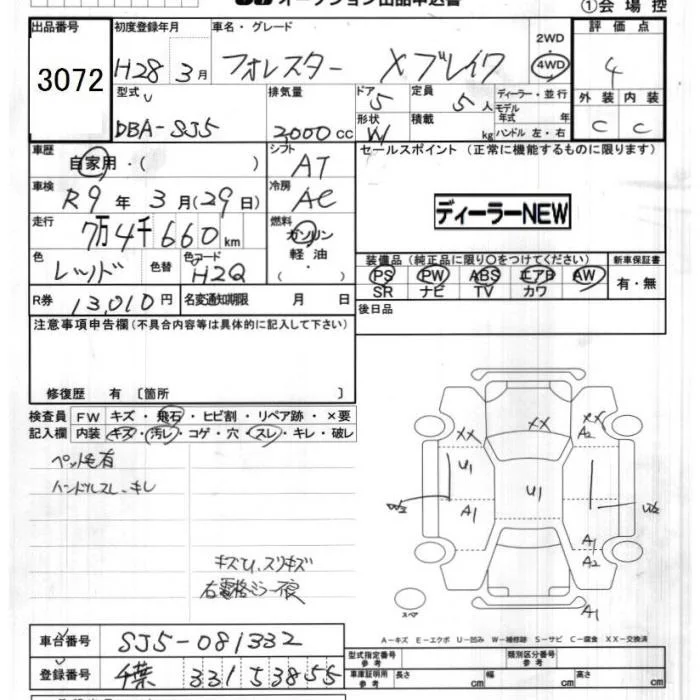 オークション出品申込書
①会場控
出品番号 初度登録年月 車名・グレード 評価点
3072 H28年3月 フォレスター Xブレイク 2WD 4WD 4
型式 排気量 ドア 定員 ディーラー・並行 外装 内装
DBA-SJ5 2000cc 5 5人 モデル年式 年 C C
形状 積載 W kg ハンドル 左・右
車歴 シフト セールスポイント (正常に機能するものに限ります)
自家用・( ) AT
車検 R9年3月(29日) 冷房 AC
ディーラーNEW
走行 7万4千660km 燃料 ガソリン
軽油
・( )
色 レッド 色替 色コード H2Q
装備品(純正品に限り○をつけてください) 新車保証書
PS PW ABS エアB AW 有・無
SR ナビ TV カワ
R券 13,010円 名変通知期限 月 日
後日品
注意事項申告欄(不具合内容等は具体的に記入して下さい)
修復歴 有 [箇所 ]
検査員 FW キズ・飛石・ヒビ割・リペア跡・×要
記入欄 内装 キズ・汚レ・コゲ・穴・スレ・キレ・破レ
ペット毛有
ハンドルスレ、キレ
キズU、スリキズ
右電格ミラー不良
XX
XX
XX
A2
U1
U1
W2
A1
A1
A2
A1
スペア
A-キズ E-エクボ U-凹み W-補修跡 S-サビ C-腐食 XX-交換済
車台番号 SJ5-081332
型式指定番号 参考 類別区分番号 参考
登録番号 千葉 331 ろ 3855
車庫証明用 参考 長さ cm 幅 cm 高さ cm